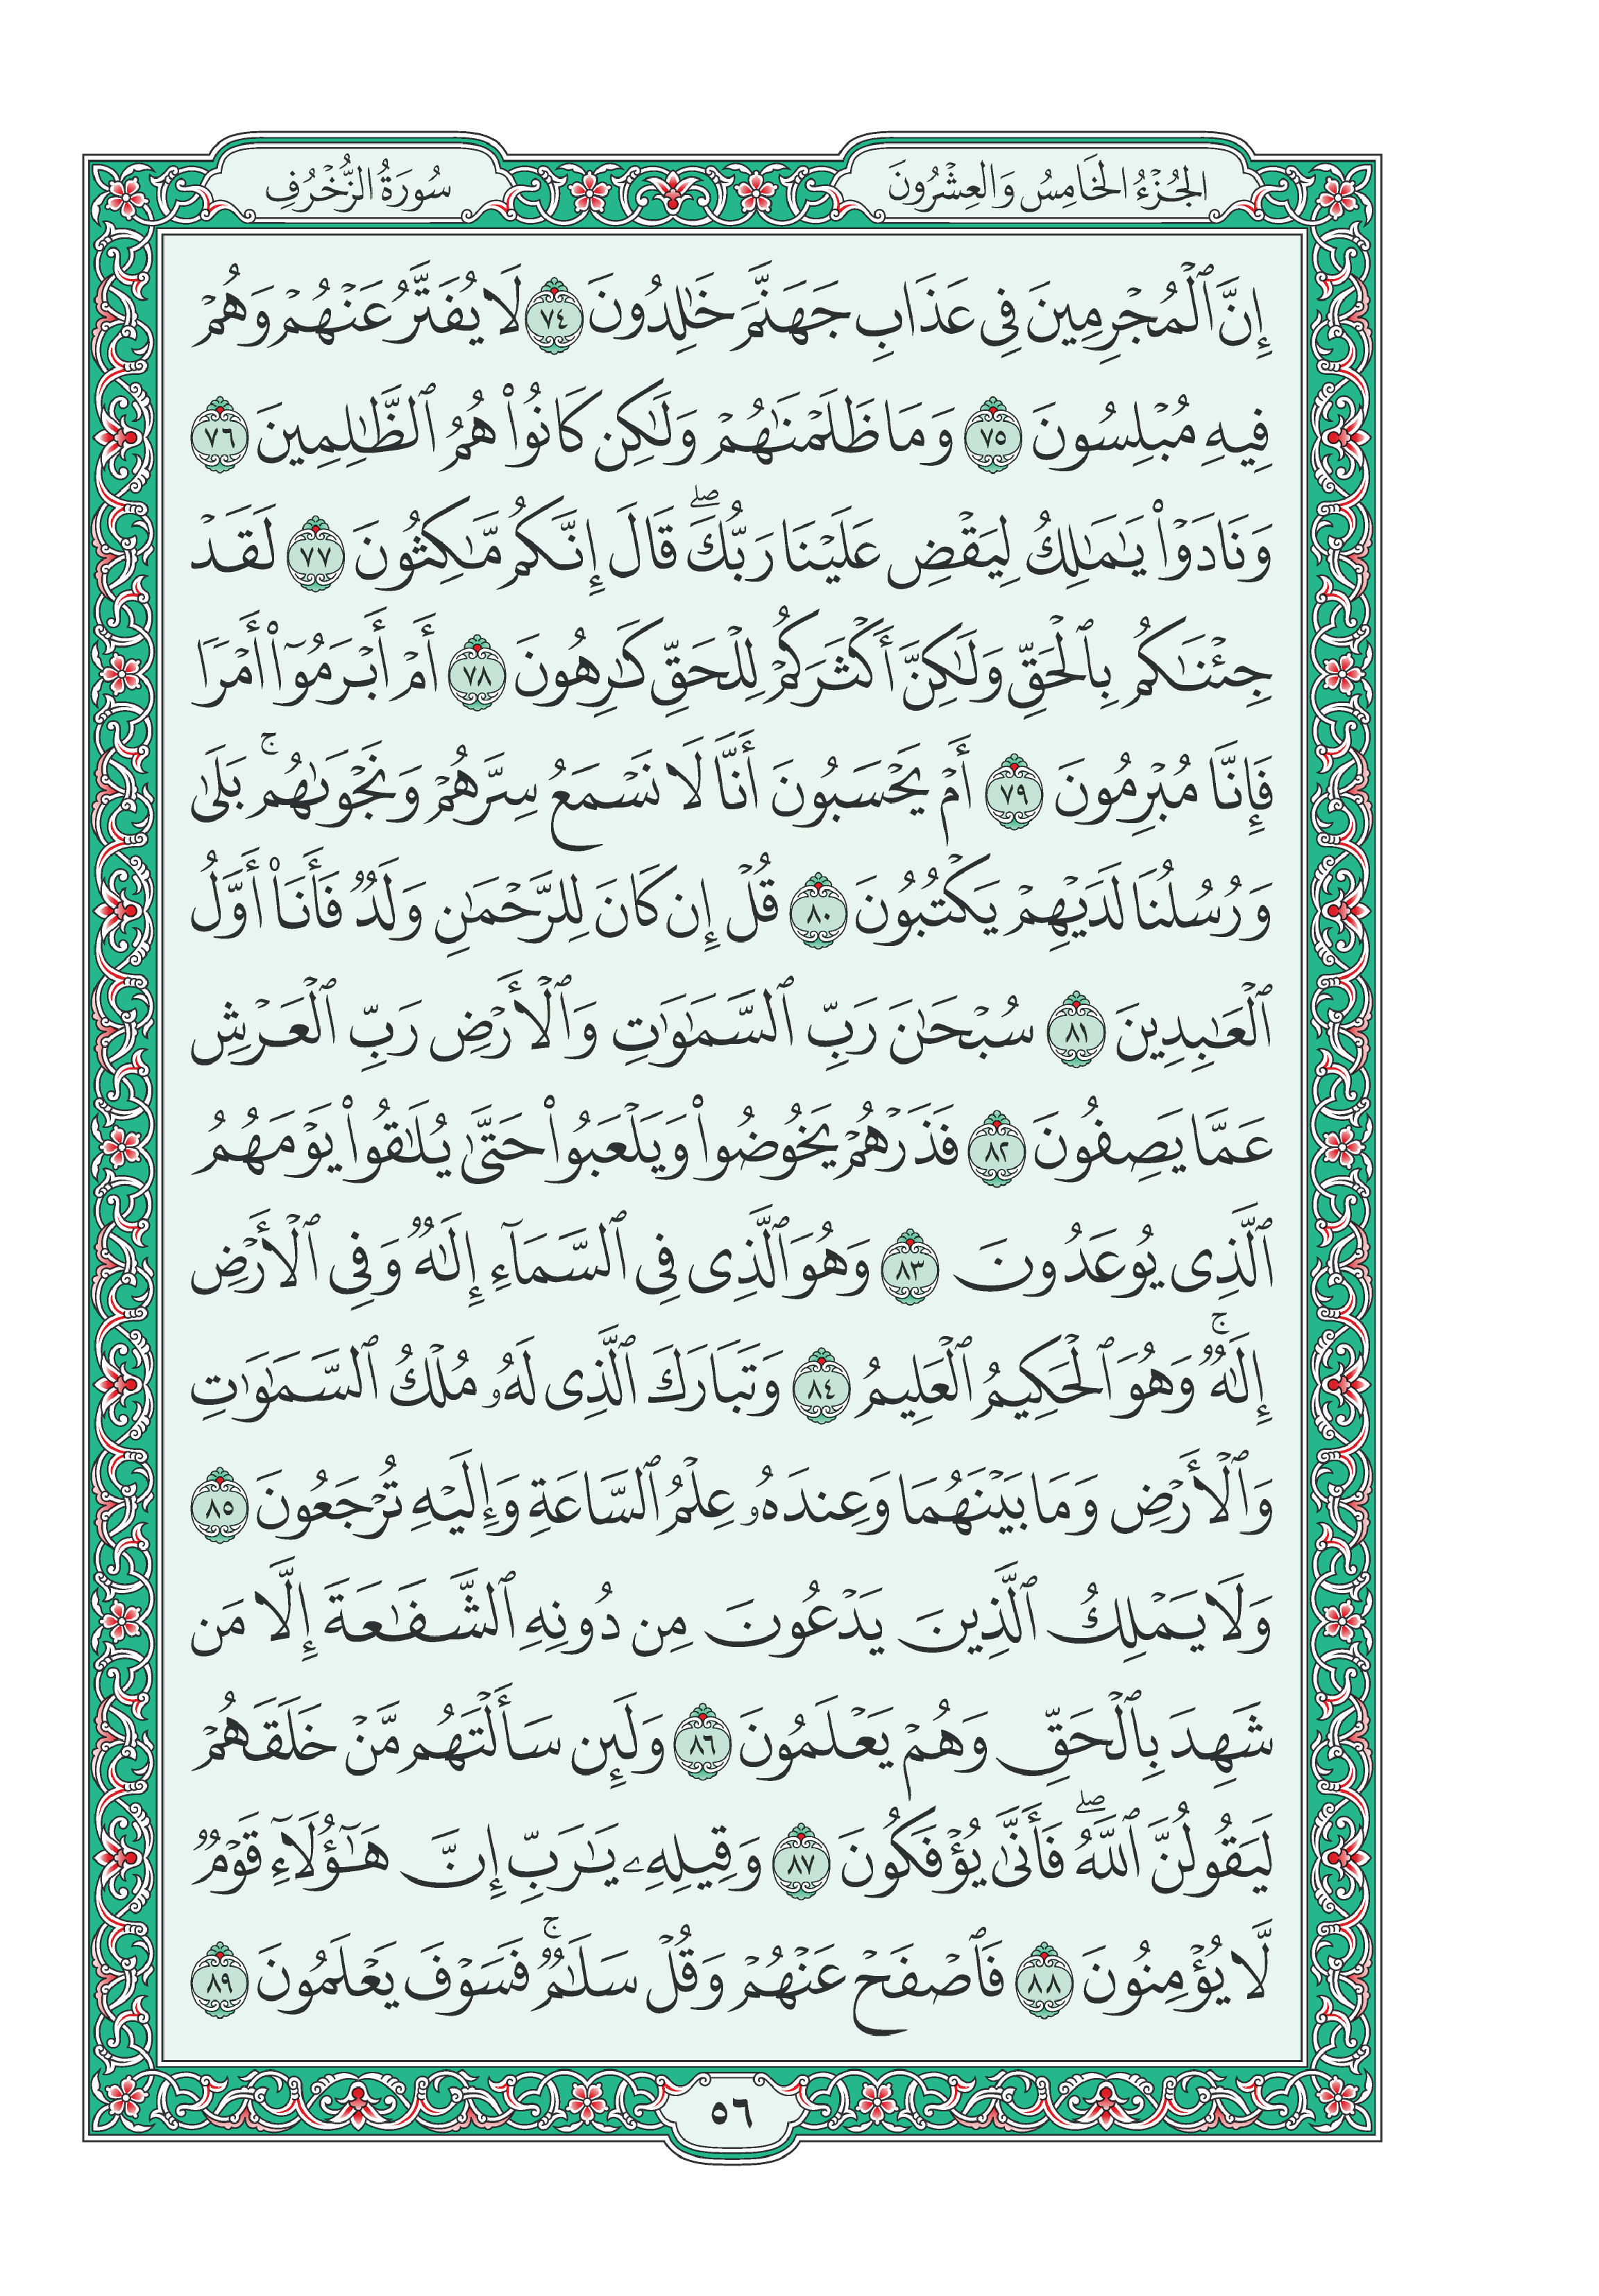 الجُزْءُ الخَامِسُ وَالعِشْرُونَ
سُورَةُ الزُّخْرُفِ
إِنَّ ٱلْمُجْرِمِينَ فِى عَذَابِ جَهَنَّمَ خَٰلِدُونَ ٧٤ لَا يُفَتَّرُ عَنْهُمْ وَهُمْ
فِيهِ مُبْلِسُونَ ٧٥ وَمَا ظَلَمْنَٰهُمْ وَلَٰكِن كَانُوا۟ هُمُ ٱلظَّٰلِمِينَ ٧٦
وَنَادَوْا۟ يَٰمَٰلِكُ لِيَقْضِ عَلَيْنَا رَبُّكَ ۖ قَالَ إِنَّكُم مَّٰكِثُونَ ٧٧ لَقَدْ
جِئْنَٰكُم بِٱلْحَقِّ وَلَٰكِنَّ أَكْثَرَكُمْ لِلْحَقِّ كَٰرِهُونَ ٧٨ أَمْ أَبْرَمُوٓا۟ أَمْرًا
فَإِنَّا مُبْرِمُونَ ٧٩ أَمْ يَحْسَبُونَ أَنَّا لَا نَسْمَعُ سِرَّهُمْ وَنَجْوَىٰهُم ۚ بَلَىٰ
وَرُسُلُنَا لَدَيْهِمْ يَكْتُبُونَ ٨٠ قُلْ إِن كَانَ لِلرَّحْمَٰنِ وَلَدٌ فَأَنَا۠ أَوَّلُ
ٱلْعَٰبِدِينَ ٨١ سُبْحَٰنَ رَبِّ ٱلسَّمَٰوَٰتِ وَٱلْأَرْضِ رَبِّ ٱلْعَرْشِ
عَمَّا يَصِفُونَ ٨٢ فَذَرْهُمْ يَخُوضُوا۟ وَيَلْعَبُوا۟ حَتَّىٰ يُلَٰقُوا۟ يَوْمَهُمُ
ٱلَّذِى يُوعَدُونَ ٨٣ وَهُوَ ٱلَّذِى فِى ٱلسَّمَآءِ إِلَٰهٌ وَفِى ٱلْأَرْضِ
إِلَٰهٌ ۚ وَهُوَ ٱلْحَكِيمُ ٱلْعَلِيمُ ٨٤ وَتَبَارَكَ ٱلَّذِى لَهُۥ مُلْكُ ٱلسَّمَٰوَٰتِ
وَٱلْأَرْضِ وَمَا بَيْنَهُمَا وَعِندَهُۥ عِلْمُ ٱلسَّاعَةِ وَإِلَيْهِ تُرْجَعُونَ ٨٥
وَلَا يَمْلِكُ ٱلَّذِينَ يَدْعُونَ مِن دُونِهِ ٱلشَّفَٰعَةَ إِلَّا مَن
شَهِدَ بِٱلْحَقِّ وَهُمْ يَعْلَمُونَ ٨٦ وَلَئِن سَأَلْتَهُم مَّنْ خَلَقَهُمْ
لَيَقُولُنَّ ٱللَّهُ ۖ فَأَنَّىٰ يُؤْفَكُونَ ٨٧ وَقِيلِهِۦ يَٰرَبِّ إِنَّ هَٰٓؤُلَآءِ قَوْمٌ
لَّا يُؤْمِنُونَ ٨٨ فَٱصْفَحْ عَنْهُمْ وَقُلْ سَلَٰمٌ ۚ فَسَوْفَ يَعْلَمُونَ ٨٩
٥٦